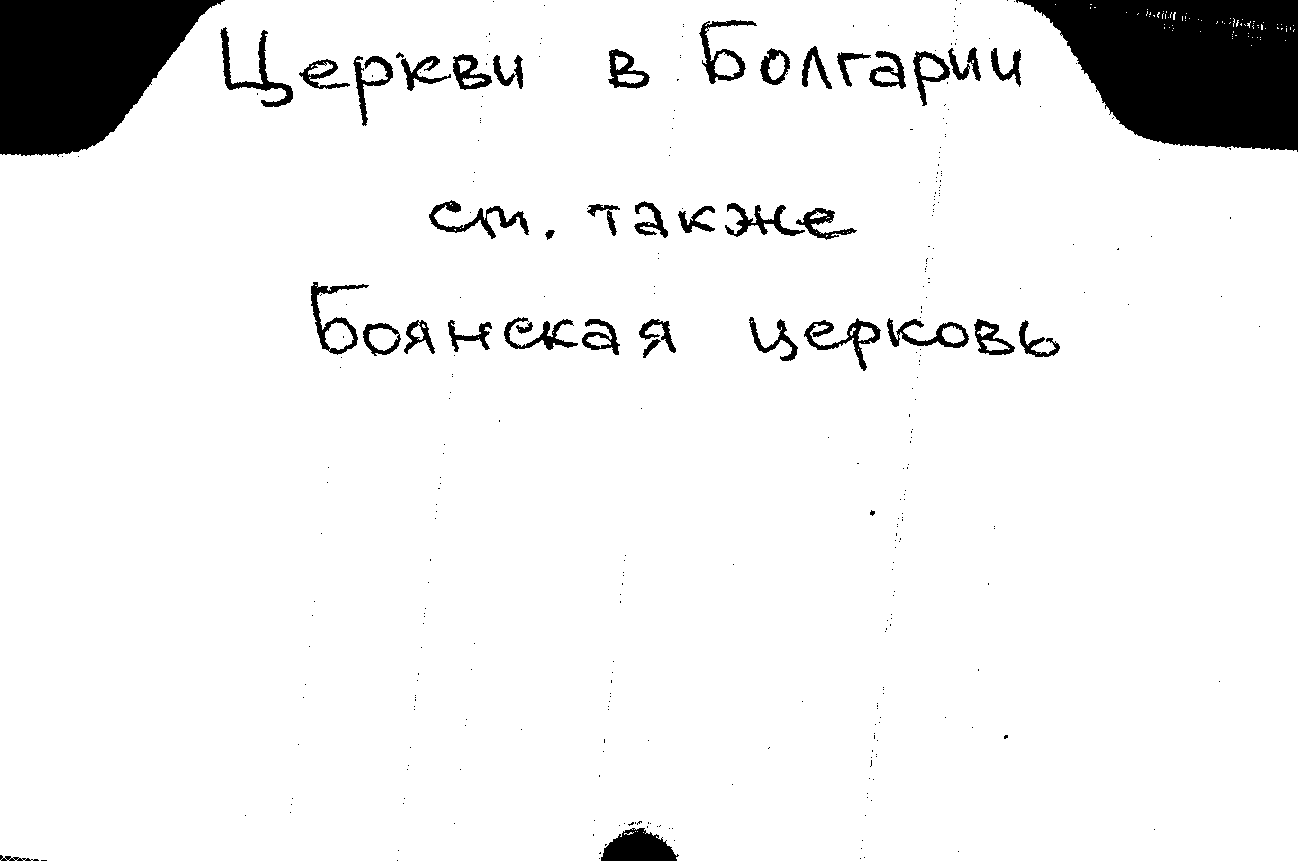 Церкви в Болгарии
см. также
Боянская церковь